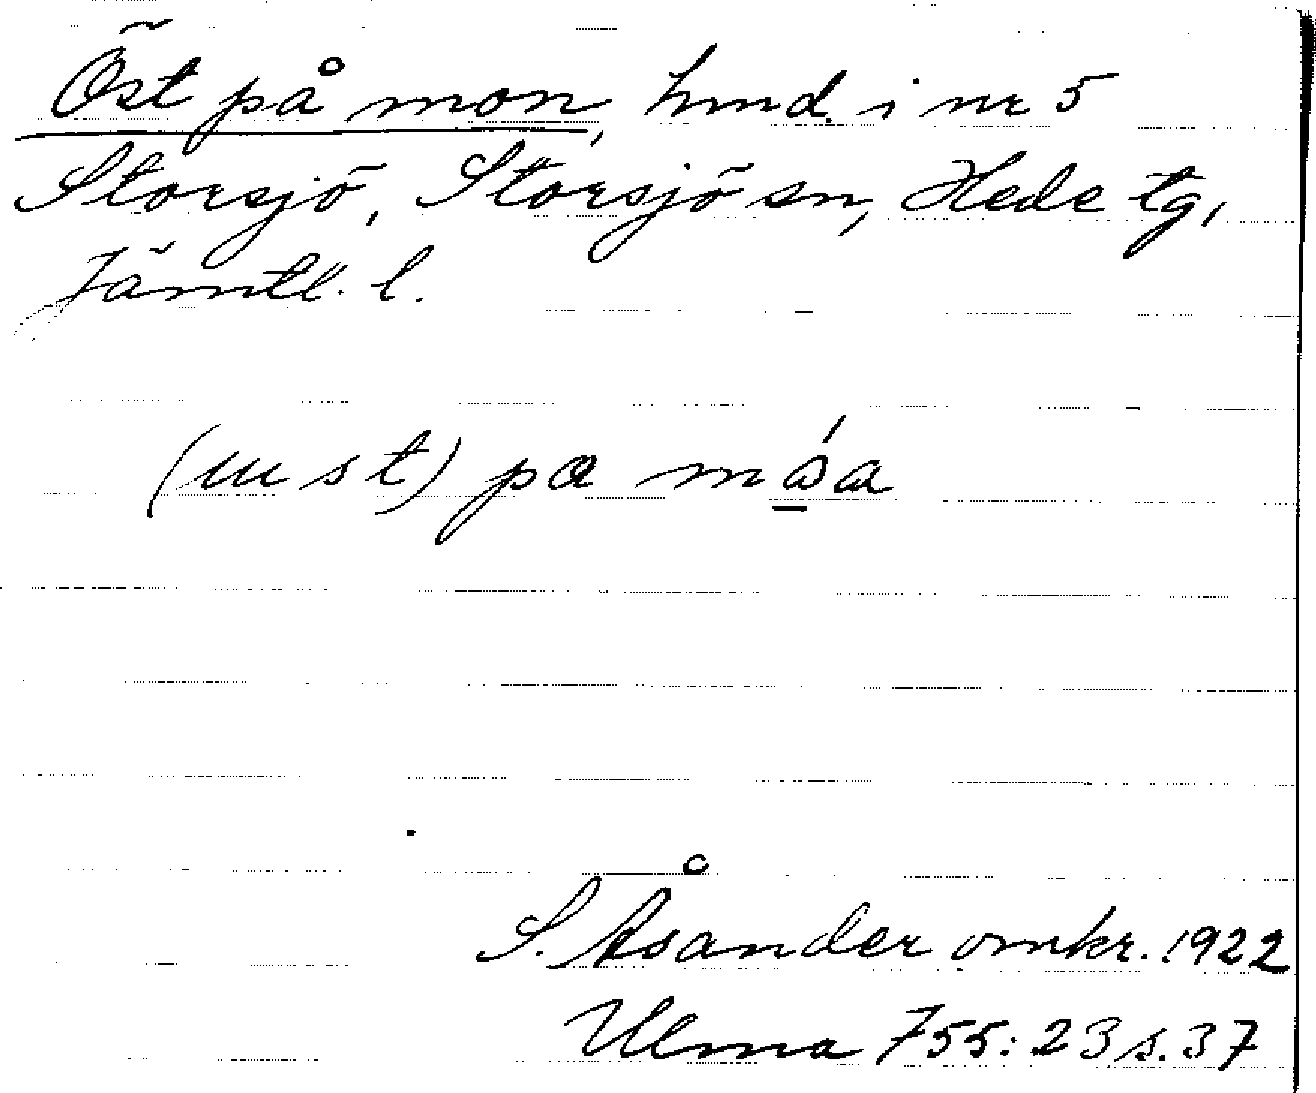 Öst på mon, hmd. i nr 5
Storsjö, Storsjö sn, Hede tg,
Jämtl. l.
pa
S. Åsander omkr. 1922
Ulma 755: 23 s. 37